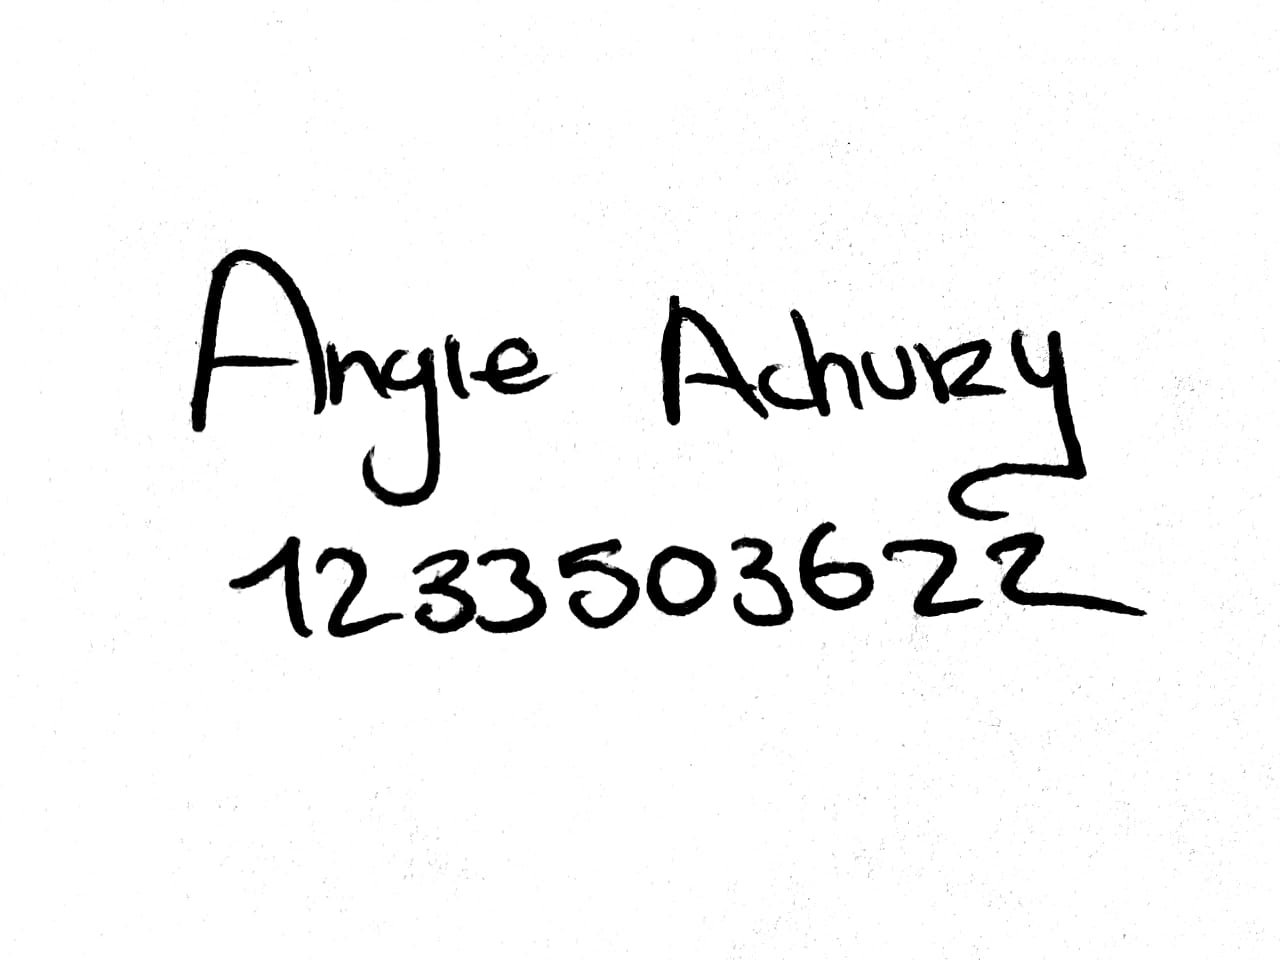 Angie Achury
1233503622